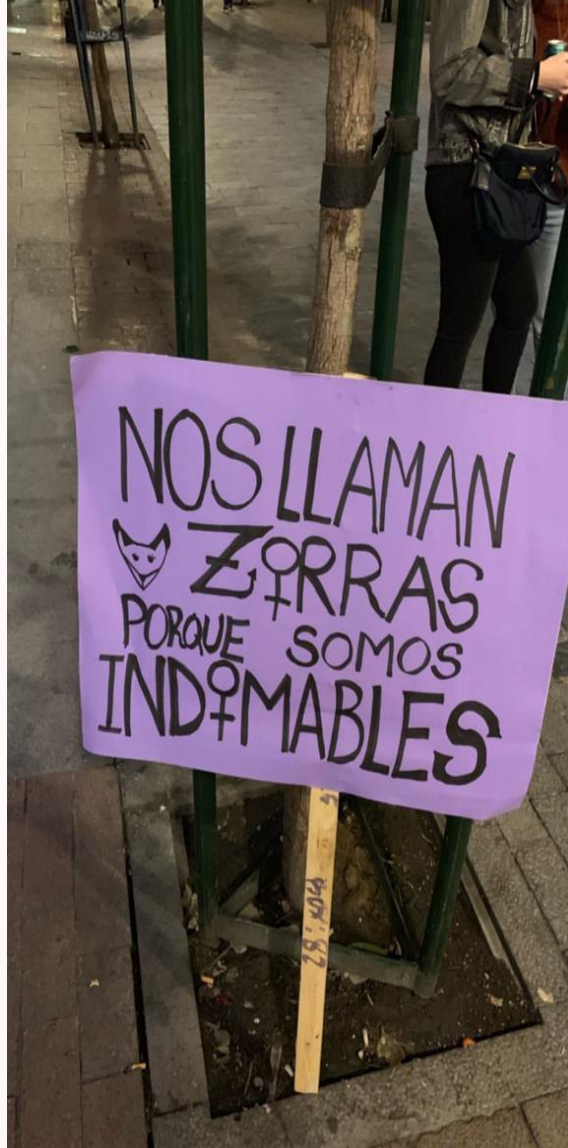 NOS LLAMAN
ZORRAS
PORQUE SOMOS
INDOMABLES